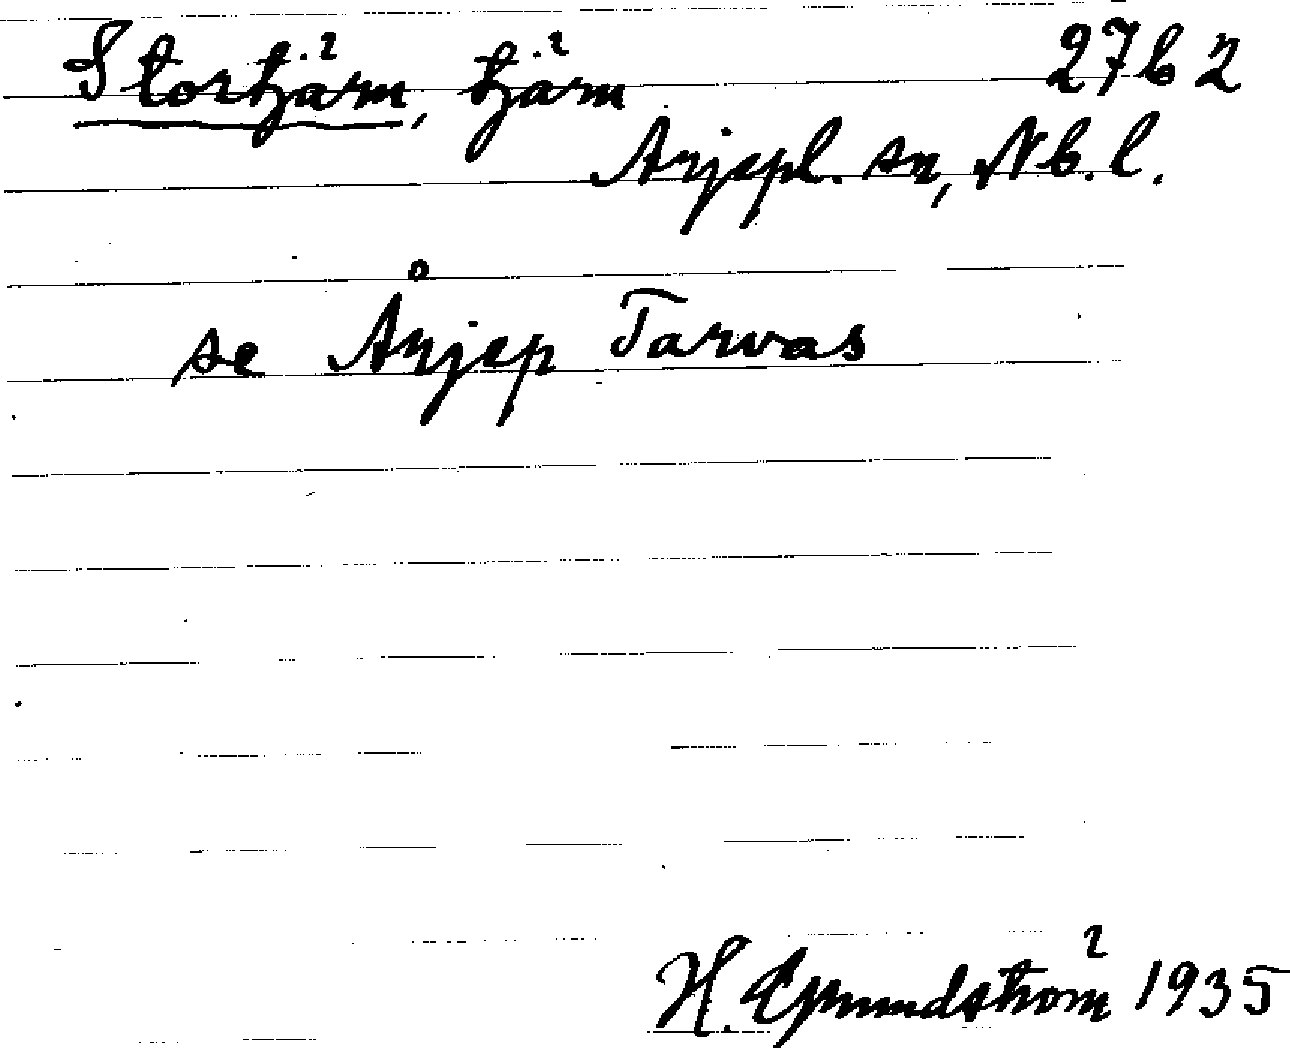 Stortjärn, tjärn 27b2
Arjepl. sn, Nb. l.
se Årjep Tarvas
H. Grundström 1935